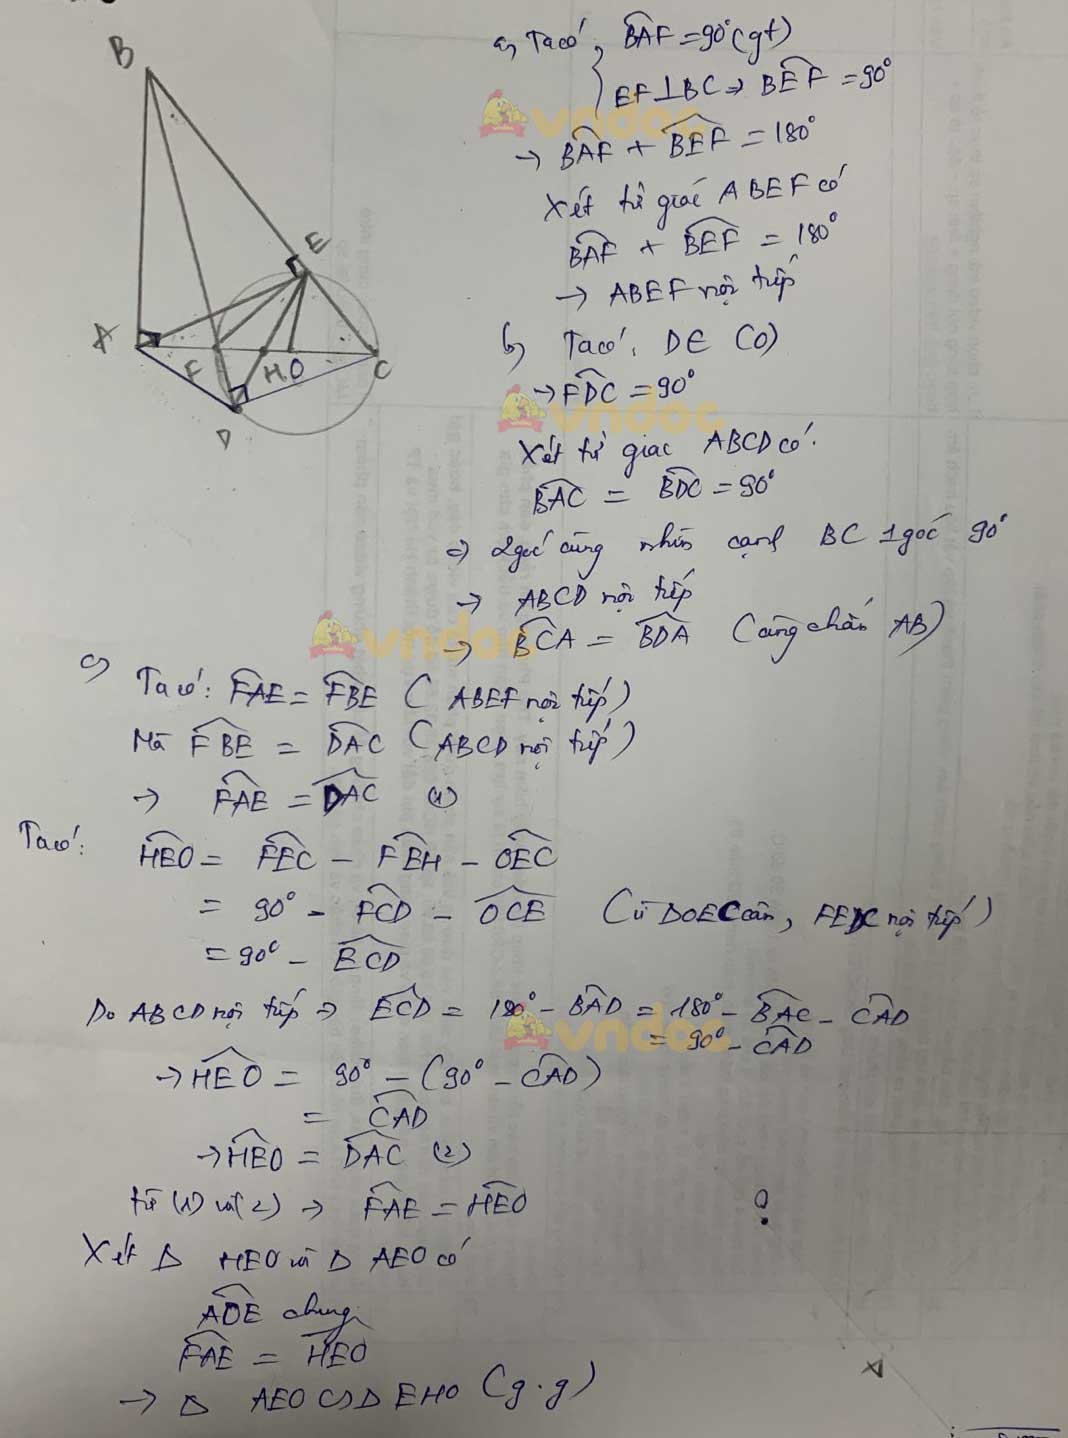 B
A
E
F
H
O
C
D
a, Ta có: BAF = 90° (gt)
EF ⊥ BC => BEF = 90°
→ BAF + BEF = 180°
Xét tứ giác ABEF có
BAF + BEF = 180°
→ ABEF nội tiếp
b, Ta có: D ∈ (O)
→ FDC = 90°
Xét tứ giác ABCD có:
BAC = BDC = 90°
=> 2 góc cùng nhìn cạnh BC 1 góc 90°
→ ABCD nội tiếp
→ BCA = BDA (cùng chắn AB)
c, Ta có: FAE = FBE (ABEF nội tiếp)
Mà FBE = DAC (ABCD nội tiếp)
→ FAE = DAC (1)
Ta có: HEO = FEC - FEH - OEC
= 90° - FCD - OCE (vì ΔOEC cân, FEDC nội tiếp)
= 90° - ECD
Do ABCD nội tiếp => ECD = 180° - BAD = 180° - BAC - CAD
= 90° - CAD
→ HEO = 90° - (90° - CAD)
= CAD
→ HEO = DAC (2)
từ (1) và (2) → FAE = HEO
Xét Δ HEO và Δ AEO có
AOE chung
FAE = HEO
→ Δ AEO ∽ Δ EHO (g.g)
vndoc
vndoc
vndoc
vndoc